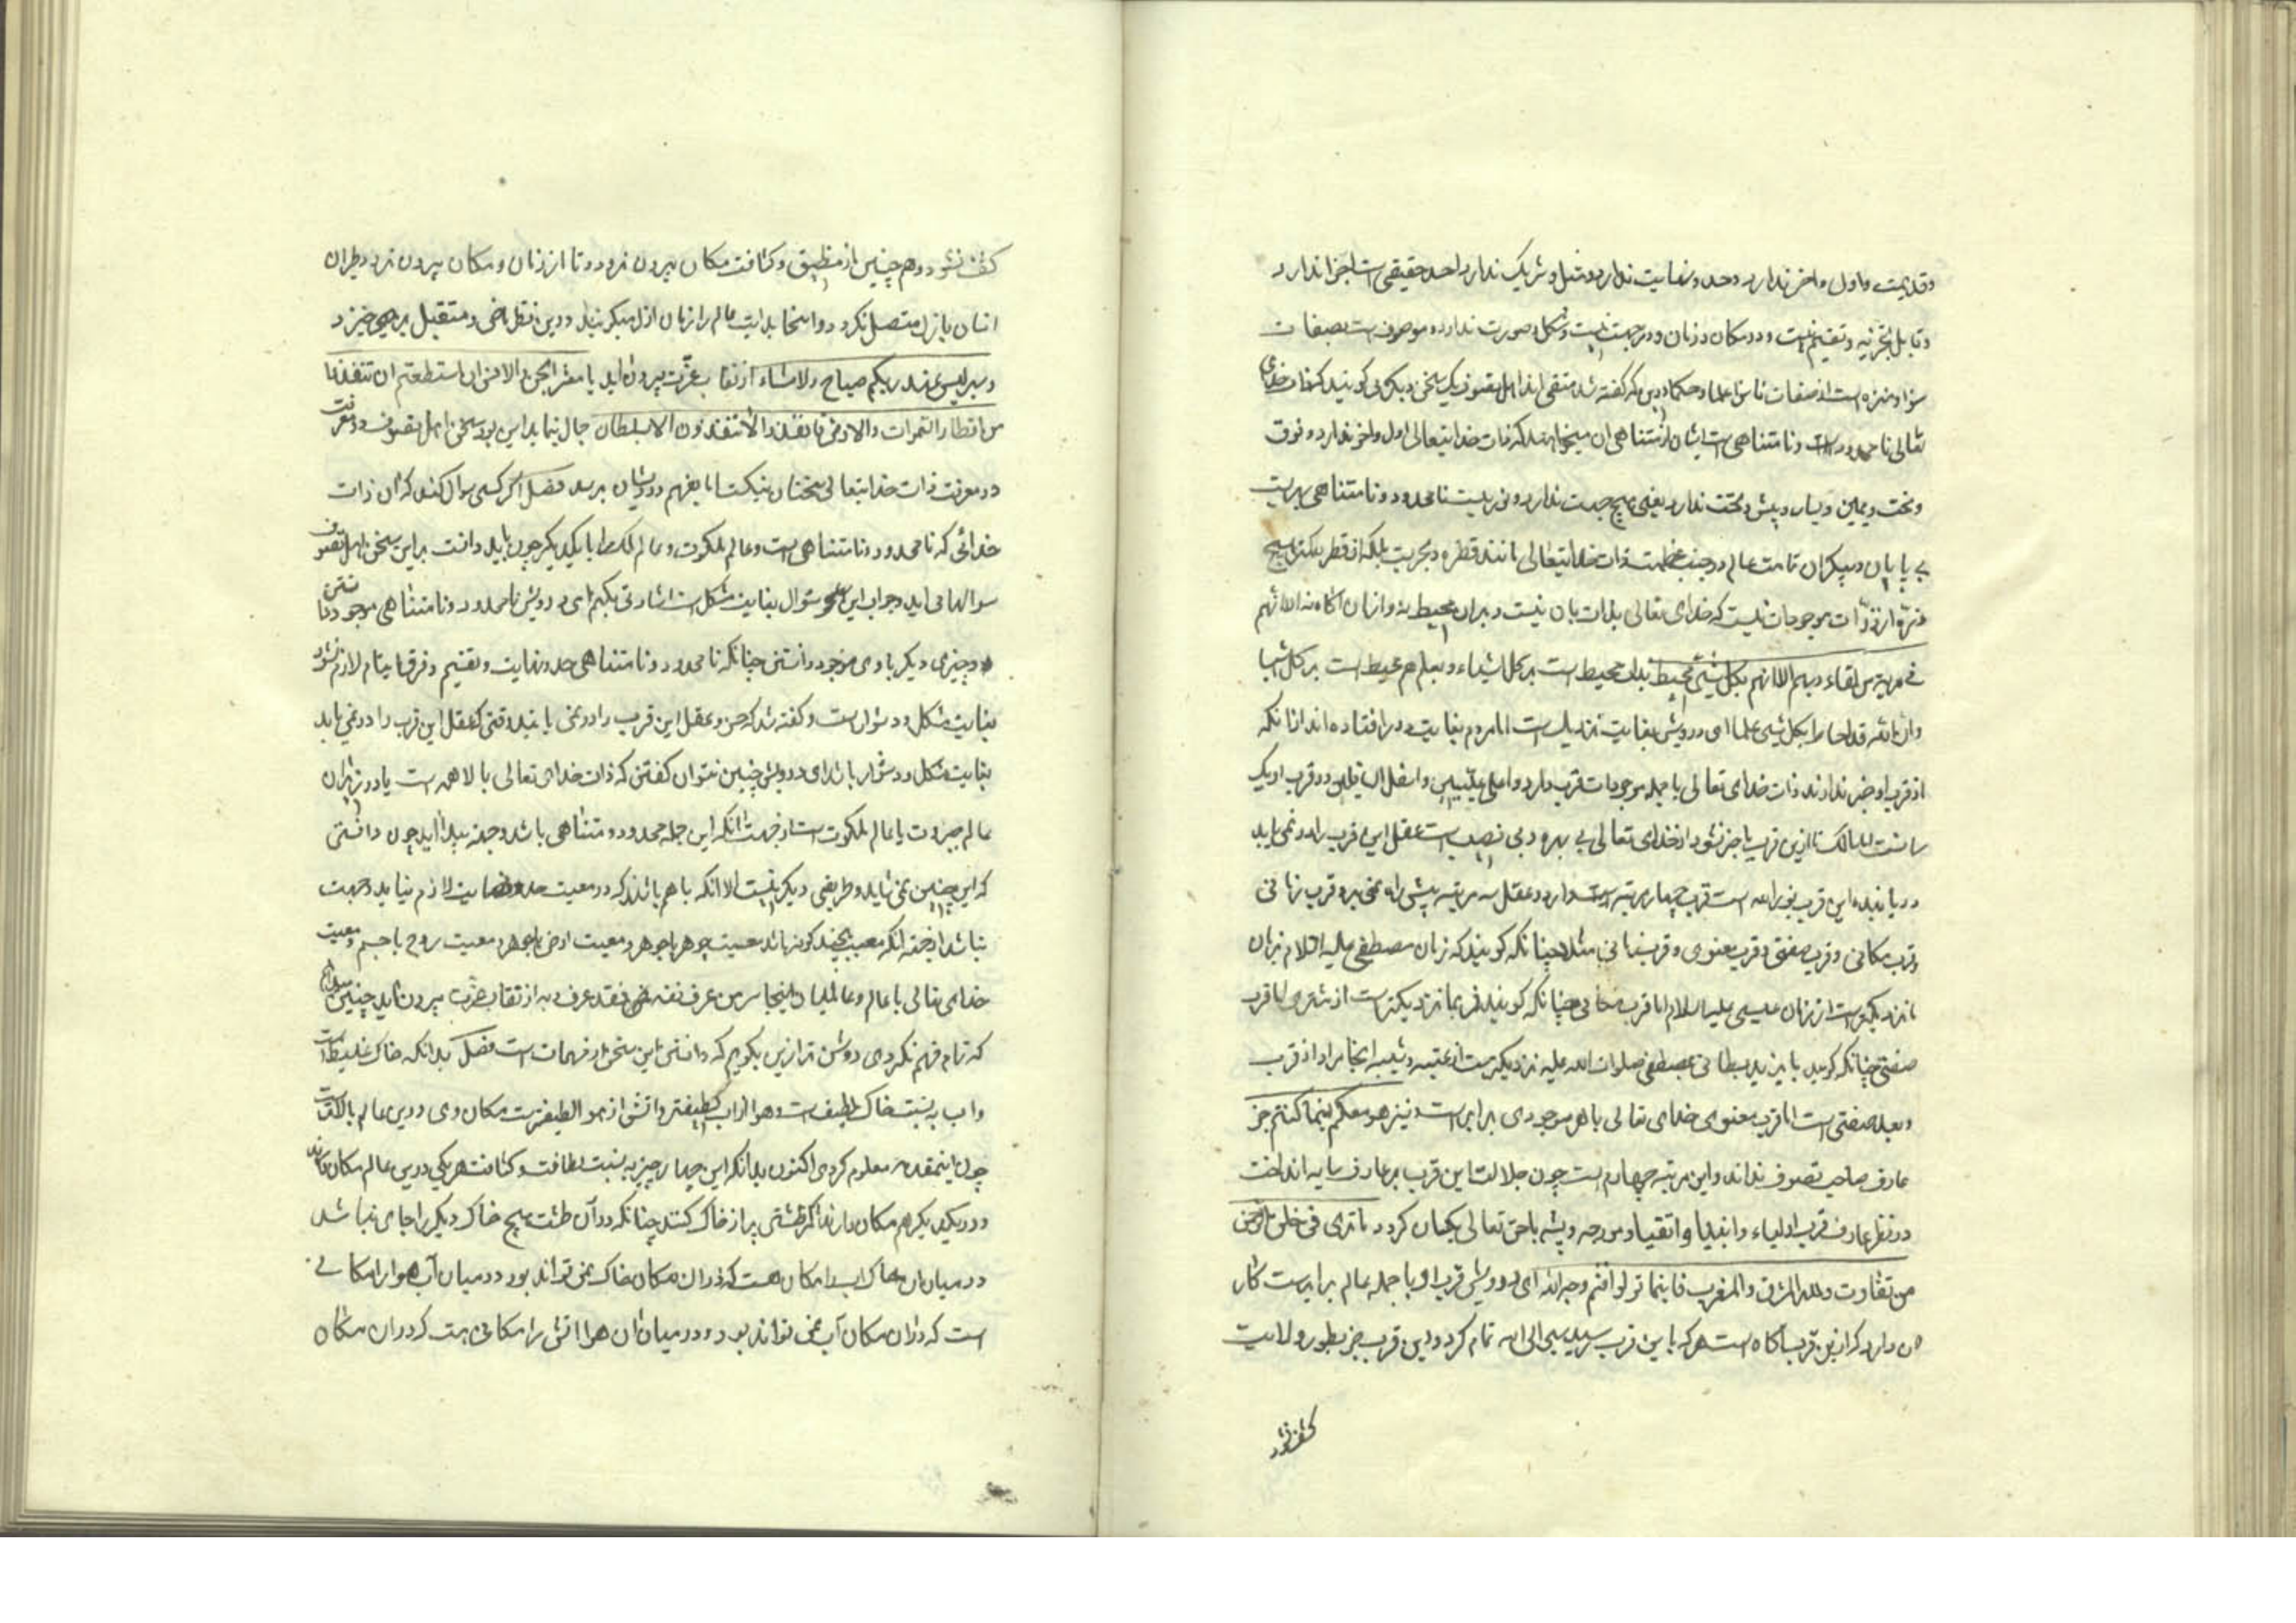 و قدیمست و اول و آخر ندارد و حد و نهایت ندارد و مثل و شریک ندارد و احد حقیقی است اجزا ندارد
و قابل تجزیه و تقسیم نیست و در مکان و زمان و در جهت نیست و شکل و صورت ندارد و موصوف است بصفات
سزا و منزه است از صفات ناسزا علما و حکما درین که گفته شد متفق اند اهل تصوف یک سخن دیگر می گویند که ذات خدای
تعالی نامحدود است و نامتناهی است ایشان از نامتناهی آن میخواهند که ذات خدایتعالی اول و آخر ندارد و فوق
و تحت و یمین و یسار و پیش و تحت ندارد یعنی هیچ جهت ندارد و نوریست نامحدود و نامتناهی بحریست
بی پایان و بیکران تمامت عالم در جنب عظمت ذات خدایتعالی مانند قطره و بحریست بلکه از قطره کمتر هیچ
ذره از ذرات موجودات نیست که خدای تعالی بذات بآن نیست و بران محیط نه و ازان آگاه نه الا انهم
فی مریة من لقاء ربهم الا انه بکل شیئ محیط بذات محیط است بر کل اشیاء و بعلم هم محیط است بر کل اشیا
وان الله قد احاط بکل شیئ علما ای درویش بغایت نزدیک است اما مردم بغایت دور افتاده اند از آنکه
از قرب او خبر ندارند ذات خدای تعالی با جمله موجودات قرب دارد و اعلی علیین و اسفل السافلین در قرب او یک
سانست سالک تا ازین قرب باخبر نشود از خدای تعالی بی بهره و بی نصیب است عقل این قرب را در نمی یابد
دریابنده این قرب نورالله است قرب چهار مرتبه دارد و عقل سه مرتبه پیش راه نمی برد قرب زمانی
و قرب مکانی و قرب صفتی و قرب معنوی و قرب زمانی مثلا چنانکه گویند که زمان مصطفی علیه السلام بزمان
ما نزدیکتر است از زمان عیسی علیه السلام اما قرب مکانی چنانکه گویند قمر بما نزدیکتر است از مشتری اما قرب
صفتی چنانکه گویند بایزید بسطامی بمصطفی صلوات الله علیه نزدیکتر است از عتبه و شیبه اینجا مراد از قرب
و بعد صفتی است اما قرب معنوی خدای تعالی با هر موجودی برابر است و نیز هو معکم اینما کنتم جز
عارف صاحب تصوف نداند و این مرتبه چهارم است چون جلالت این قرب بر عارف سایه انداخت
در نظر عارف قرب اولیاء و انبیا و اتقیا و مورچه و پشه با حق تعالی یکسان گردد ما تری فی خلق الرحمن
من تفاوت ولله المشرق والمغرب فاینما تولوا فثم وجه الله ای درویش قرب او با جمله عالم برابرست کار
آن دارد که ازین قرب آگاه است هر که باین قرب رسید سیر الی الله تمام کرد و این قرب جز بطور ولایت
کشف نشود
کشف نشود و هم چنین از مضیق و کثافت مکان بیرون نرود و تا از زمان و مکان بیرون نرود طیران
انسان بازل متصل نگردد و اینجا بدایت عالم را زمان ازل میگویند و درین نظر ماضی و مستقبل بر می خیزد
و سر لیس عند ربکم صباح ولا مساء از نقاب عزت بیرون اید یا معشر الجن والانس ان استطعتم ان تنفذوا
من اقطار السموات والارض فانفذوا لا تنفذون الا بسلطان جمال نماید این بود سخن اهل تصوف در معرفت
در معرفت ذات خدایتعالی سخنان نیکست اما بفهم درویشان برسد فصل اگر کسی سوال کند که آن ذات
خدائی که نامحدود و نامتناهی است و عالم ملکوت و عالم ملک را با یکدیگر چون باید دانست بر این سخن اهل تصوف
سوالها می آید و جواب این سوال بغایت مشکل است اشارتی بکنیم ای درویش نامحدود و نامتناهی موجود دانستن
و چیزی دیگر با وی موجود دانستن چنانکه نامحدود و نامتناهی حد و نهایت و تقسیم و فرق لازم نشود
بغایت مشکل و دشوارست و گفته شد که حس و عقل این قرب را در نمی یابند وقتی که عقل این قرب را در نمی یابد
بغایت مشکل و دشوار باشد ای درویش چنین نتوان گفتن که ذات خدای تعالی بالا همه است یا در زیر آن
عالم جبروت یا عالم ملکوت است از جهت آنکه این جمله محدود و متناهی باشد و جهة پیدا آید چون دانستی
که این چنین نمی شاید و طریقی دیگر نیست الا آنکه با هم باشند که در معیت حد و نهایت لازم نیاید و جهت
نباشد از جهة آنکه معیت بچند گونه باشد معیت جوهر با جوهر و معیت عرض با جوهر و معیت روح با جسم و معیت
خدای تعالی با عالم و عالمیان و اینجا سر من عرف نفسه فقد عرف ربه از نقاب عزت بیرون آید چنین میدانم
که تمام فهم نکردی روشن تر ازین بگویم که دانستن این سخن از مهمات است فصل بدانکه خاک غلیظ است
و آب به نسبت خاک لطیف است و هوا از آب لطیفتر و آتش از هوا لطیفترست مکان وی درین عالم بالاترست
چون این مقدمه معلوم کردی اکنون بدانکه این چهار چیز به نسبت لطافت و کثافت هر یکی درین عالم مکان دارند
و در یکدیگر هم مکان دارند اگر طشتی پر از خاک کنند چنانکه در آن طشت هیچ خاک دیگر را جای نباشد
در میان آن خاک آب را مکان هست که در آن مکان خاک نمی تواند بود و در میان آب هوا را مکانی
است که در آن مکان آب نمی تواند بود و در میان آن هوا آتش را مکانی هست که در آن مکان